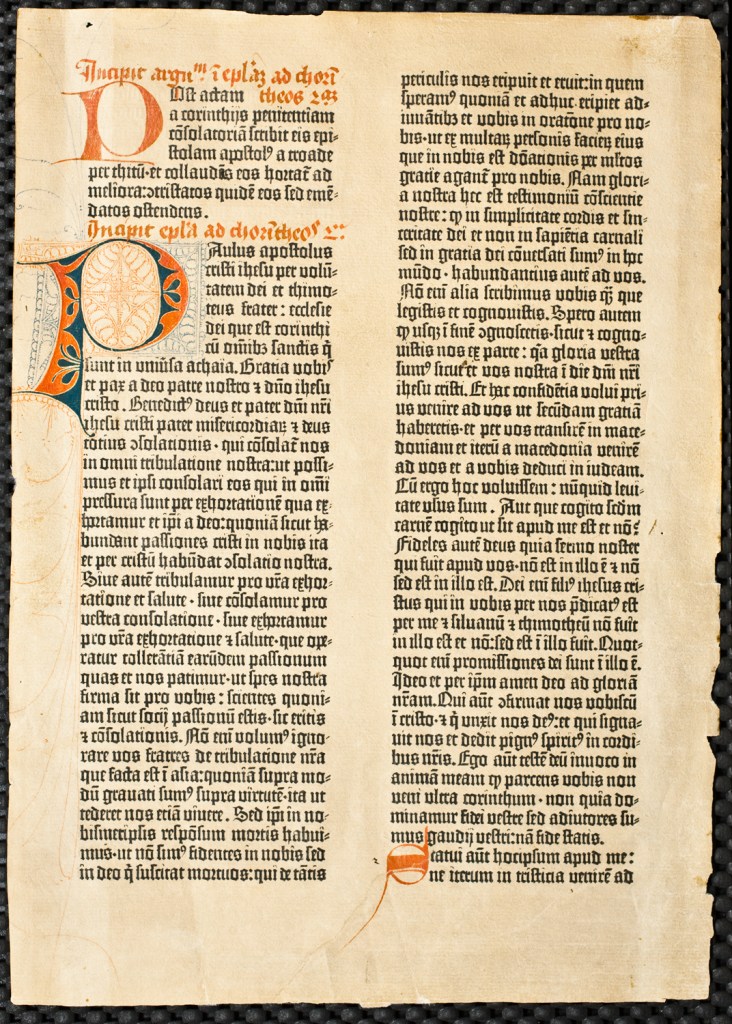 Incipit argum̄ ī epl'aꝫ ad chorī
Post actam theos 2aꝫ
a corinthijs penitentiam
cōsolatoriā scribit eis epi⸗
stolam apostolꝰ a troade
per thitū·et collaudās eos hortat̃ ad
meliora:ↄtristatos quidē eos sed emē⸗
datos ostendens.
Incipit epl'a ad chorītheoꝰ 2a
Paulus apostolus
cristi ihesu per volū⸗
tatem dei et thimo⸗
teus frater: ecclesie
dei que est corinthi
cū omībꝫ sanctis q̄
sunt in vniūsa achaia. Gratia vobiꝰ
et pax a deo patre nostro ⁊ dn̄o ihesu
cristo. Benedictꝰ deus et pater dn̄i nr̄i
ihesu cristi pater misericordiaꝝ ⁊ deus
tōtius ↄsolationis·qui cōsolat̃ nos
in omni tribulatione nostra:ut possi⸗
mus et ipsi consolari eos qui in om̄i
pressura sunt per exhortationē qua ex⸗
hortamur et ip̄i a deo:quoniā sicut ha⸗
bundant passiones cristi in nobis ita
et per cristū habūdat ↄsolatio nostra.
Siue autē tribulamur pro vr̄a exhor⸗
tatione et salute·siue cōsolamur pro
vestra consolatione·siue exhortamur
pro vr̄a exhortatione ⁊ salute·que ope⸗
ratur tollerātiam earūdem passionum
quas et nos patimur·ut spes nostra
firma sit pro vobis: scientes quoni⸗
am sicut socij passionū estis·sic eritis
⁊ cōsolationis. Nō em̄ volumꝰ igno⸗
rare vos fratres de tribulatione nr̄a
que facta est ī asia:quoniā supra mo⸗
dū grauati sumꝰ supra virtutē·ita ut
tederet nos etiā viuere. Sed ip̄i in no⸗
bismetipsis respōsum mortis habui⸗
mus·ut nō simꝰ fidentes in nobis sed
in deo q̄ suscitat mortuos:qui de tātis
periculis nos eripuit et eruit:in quem
speramꝰ quoniā et adhuc eripiet ad⸗
iuuātibꝫ et vobis in oratōne pro no⸗
bis·ut ex multaꝝ personis facieꝝ eius
que in nobis est dōationis per m̄ltos
gratie agant̃ pro nobis. Nam glori⸗
a nostra hec est testimoniū cōscientie
nostre: ꝙ in simplicitate cordis et sin⸗
ceritate dei et non in sapiētia carnali
sed in gratia dei cōuersati sumꝰ in hoc
mūdo·habundancius autē ad vos.
Nō em̄ alia scribimus vobis q̄ꝫ que
legistis et cognouistis. Spero autem
ꝙ usqꝫ ī finē ↄgnoscetis·sicut ⁊ cogno⸗
uistis nos ex parte: q̄a gloria vestra
sumꝰ sicut et vos nostra ī die dn̄i nr̄i
ihesu cristi. Et hac confidētia volui pri⸗
us venire ad vos ut secūdam gratiā
haberetis·et per vos transire in mace⸗
doniam et iterū a macedonia venire
ad vos et a vobis deduci in iudeam.
Cū ergo hoc voluissem: nūquid leui⸗
tate vsus sum. Aut que cogito scd̄m
carnē cogito ut sit apud me est et nō?
Fideles autē deus quia sermo noster
qui fuit apud vos·nō est in illo ē ⁊ nō
sed est in illo est. Dei em̄ filiꝰ ihesus cri⸗
stus qui in vobis per nos p̄dicatꝰ est
per me ⁊ siluanū ⁊ thimotheū nō fuit
in illo est et nō:sed est ī illo fuit. Quot⸗
quot em̄ promissiones dei sunt ī illo ē.
Ideo et per ip̄m amen deo ad gloriā
nr̄am. Qui aūt ↄfirmat nos vobiscū
ī cristo·⁊ q̄ vnxit nos deꝰ:et qui signa⸗
uit nos et dedit pignꝰ spiritꝰ in cordi⸗
bus nr̄is. Ego aūt testē deū inuoco in
animā meam ꝙ parcens vobis non
veni vltra corinthum·non quia do⸗
minamur fidei vestre sed adiutores su⸗
mus gaudij vestri:nā fide statis.
Statui aūt hocipsum apud me:
ne iterum in tristicia venirē ad